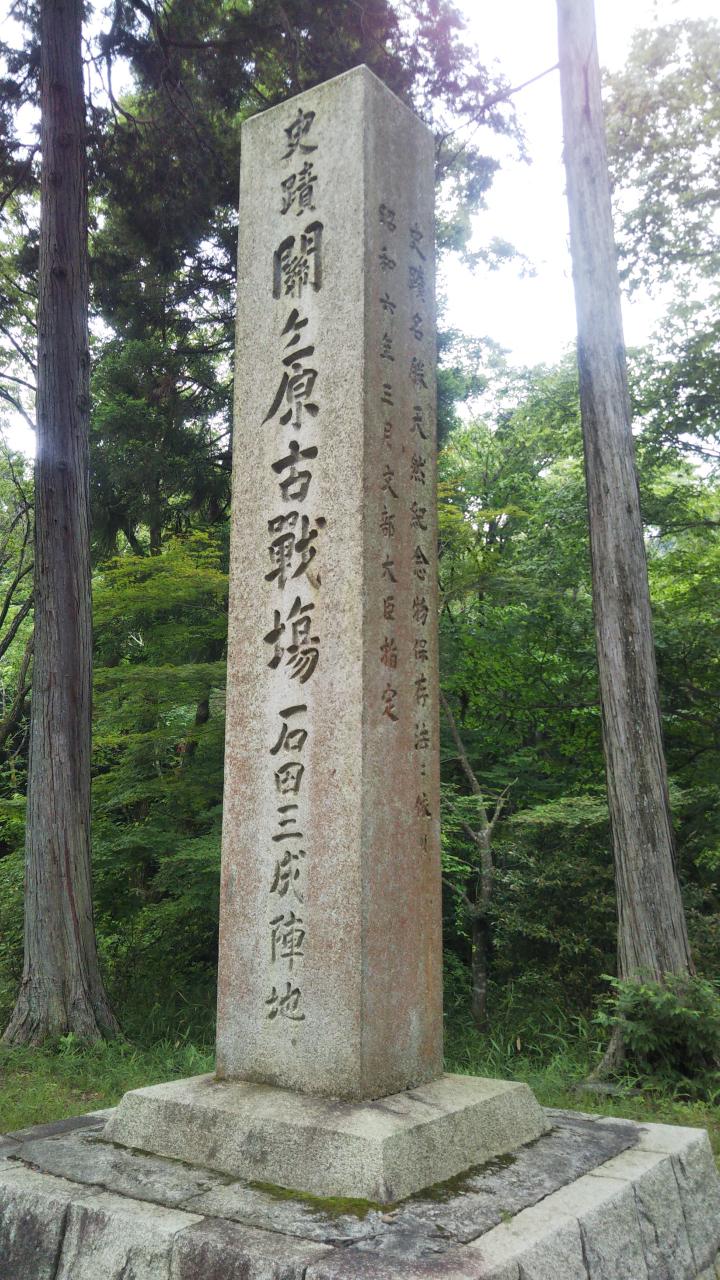 史蹟關ヶ原古戰塲石田三成陣地
史蹟名勝天然紀念物保存法ニ依リ
昭和六年三月文部大臣指定